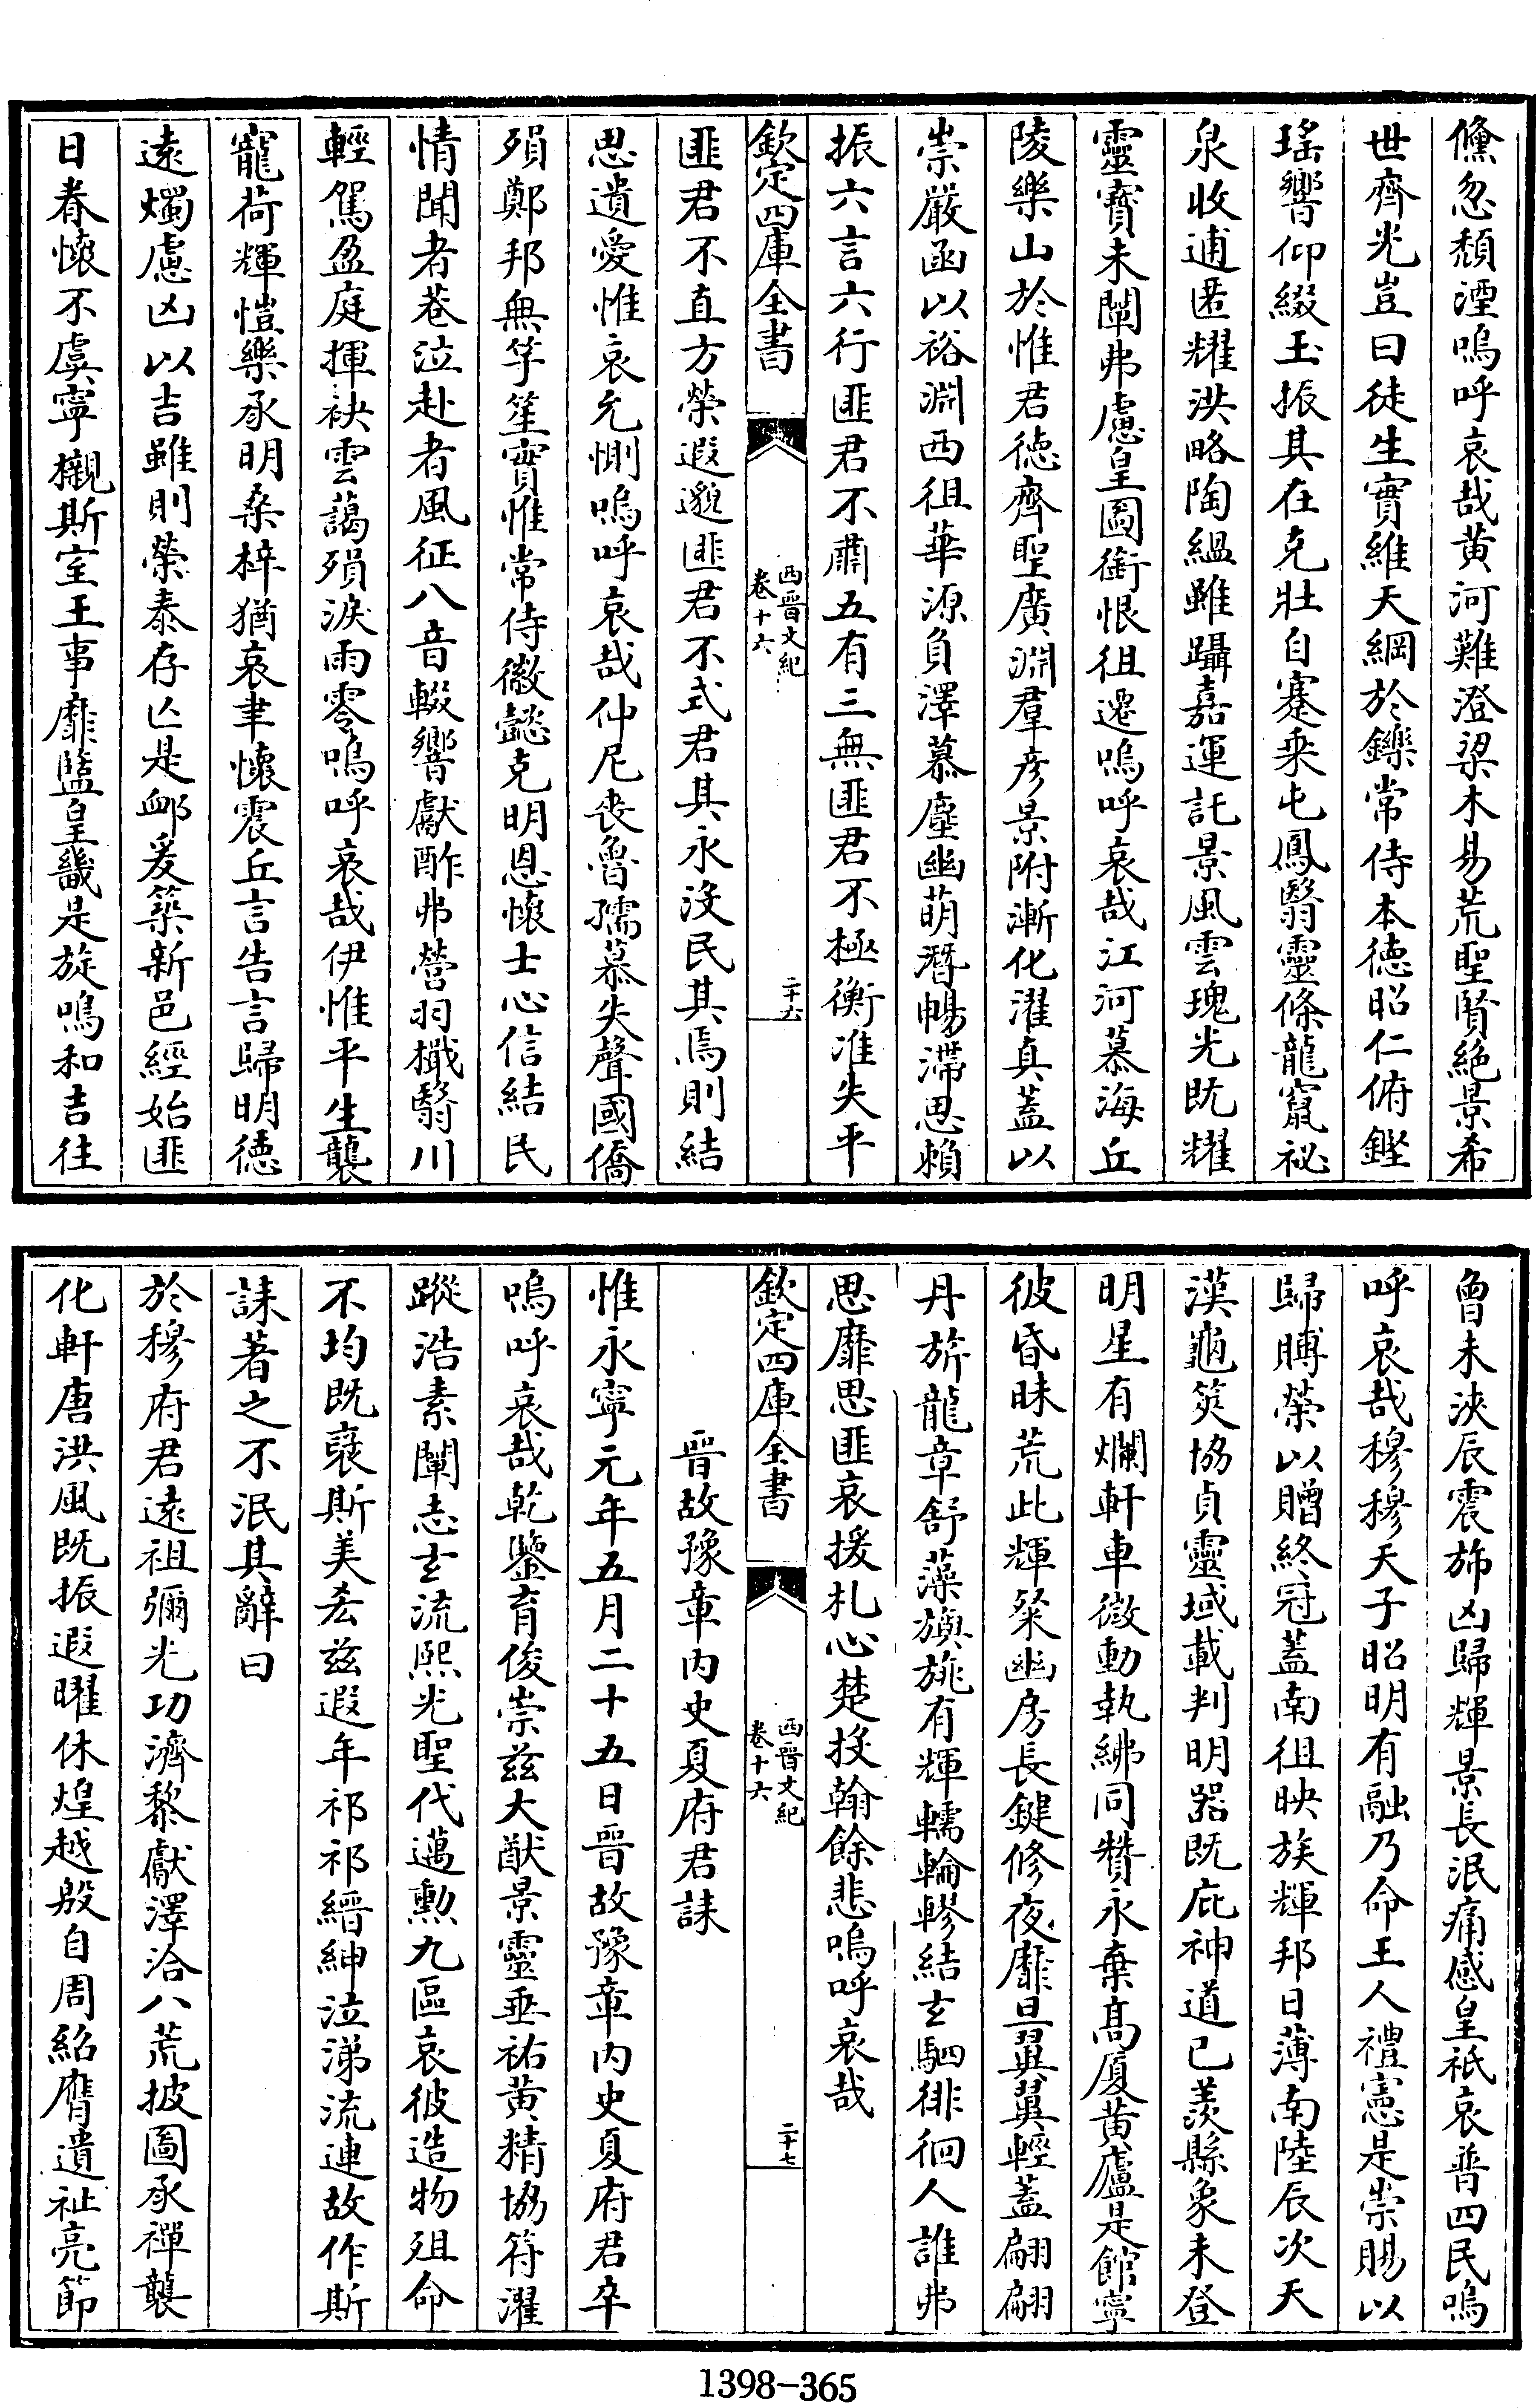 儵忽頹湮嗚呼哀哉黄河難澄梁木易荒聖賢絶景希
世齊光豈曰徒生實維天綱於鑠常侍本德昭仁俯鏗
瑤響仰綴玉振其在克壯自蹇乘屯鳳翳靈條龍竄祕
泉收逋匿耀洪略陶縕雖躡嘉運託景風雲瑰光既耀
靈寶未闡弗慮皇圖銜恨徂遷嗚呼哀哉江河慕海丘
陵樂山於惟君德齊聖廣淵羣彦景附漸化濯真蓋以
崇嚴函以裕淵西徂華源負澤慕塵幽萌潛暢滯思頼
振六言六行匪君不肅五有三無匪君不極衡准失平
欽定四庫全書
西晉文紀
卷十六
二十六
匪君不直方榮遐邈匪君不式君其永沒民其焉則結
思遺愛惟哀允惻嗚呼哀哉仲尼丧魯孺慕失聲國僑
殞鄭邦無竽笙實惟常侍徽懿克明恩懷士心信結民
情聞者巷泣赴者風征八音輟響獻酢弗營羽檝翳川
輕駕盈庭揮袂雲藹殞淚雨零嗚呼哀哉伊惟平生襲
寵荷輝愷樂承明桑梓猶哀聿懷震丘言告言歸明德
遠燭慮凶以吉雖則榮泰存亾是邮爰築新邑經始匪
日眷懷不虞寧櫬斯室王事靡盬皇畿是旋鳴和吉往
曾未浹辰震斾凶歸輝景長泯痛感皇祇哀普四民嗚
呼哀哉穆穆天子昭明有融乃命王人禮憲是崇賜以
歸賻榮以贈終冠蓋南徂映族輝邦日薄南陸辰次天
漢龜筴協貞靈域載判明器既庇神道已羨縣象未登
明星有爛軒車微動執紼同贊永棄髙厦黄廬是館寧
彼昏昧荒此輝粲幽房長鍵修夜靡旦翼翼輕蓋翩翩
丹旂龍章舒藻旟旐有輝轜輪轇結𤣥駟徘徊人誰弗
思靡思匪哀援札心楚投翰餘悲嗚呼哀哉
欽定四庫全書
西晉文紀
卷十六
二十七
晉故豫章内史夏府君誄
惟永寧元年五月二十五日晉故豫章内史夏府君卒
嗚呼哀哉乾鑒育俊崇兹大猷景靈垂祐黄精協符濯
蹤浩素闡志𤣥流熙光聖代邁勲九區哀彼造物殂命
不均既裒斯美厺兹遐年祁祁縉紳泣涕流連故作斯
誄著之不泯其辭曰
於穆府君遠祖彌光功濟黎獻澤洽八荒披圖承禪襲
化軒唐洪風既振遐曜休煌越殷自周紹膺遺祉亮節
1398-365